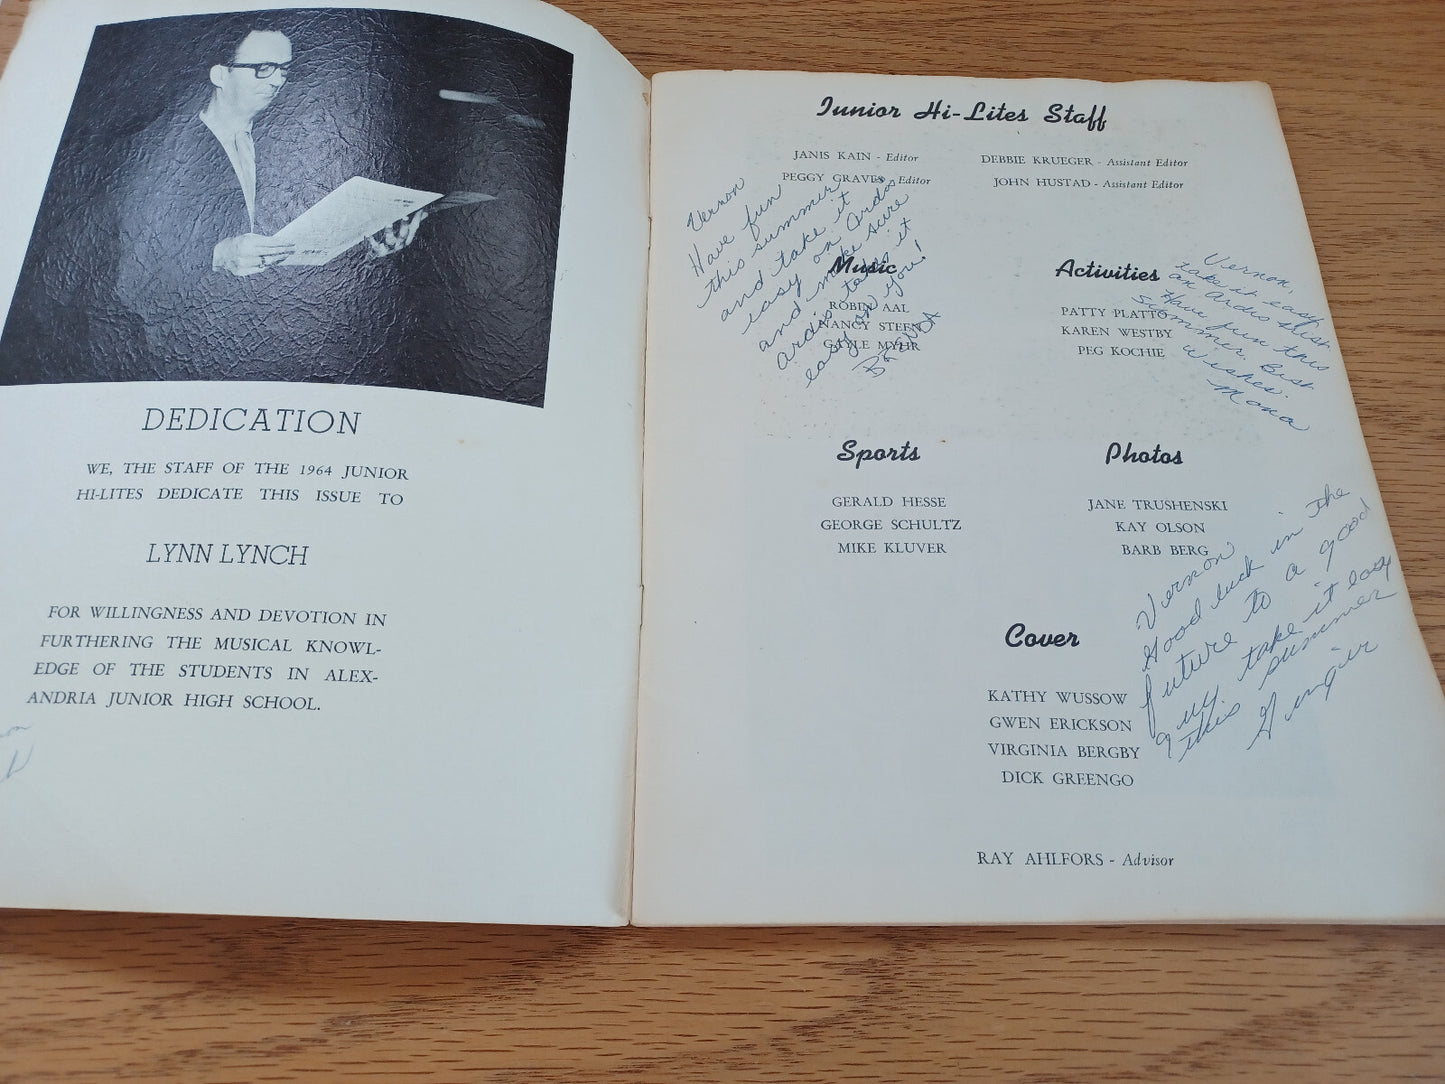 DEDICATION
WE, THE STAFF OF THE 1964 JUNIOR
HI-LITES DEDICATE THIS ISSUE TO
LYNN LYNCH
FOR WILLINGNESS AND DEVOTION IN
FURTHERING THE MUSICAL KNOWL-
EDGE OF THE STUDENTS IN ALEX-
ANDRIA JUNIOR HIGH SCHOOL.
Junior Hi-Lites Staff
JANIS KAIN - Editor
PEGGY GRAVES - Editor
DEBBIE KRUEGER - Assistant Editor
JOHN HUSTAD - Assistant Editor
Vernon
Have fun
this summer
and take it
easy on Ardos
and make sure
Ardis takes it
easy on you!
Music
ROBIN AAL
NANCY STEEN
GAYLE MYHR
Activities
PATTY PLATTO
KAREN WESTBY
PEG KOCHIE
Vernon,
take it easy
on Ardis
Have fun this
summer. Best
Wishes.
Mona
Sports
GERALD HESSE
GEORGE SCHULTZ
MIKE KLUVER
Photos
JANE TRUSHENSKI
KAY OLSON
BARB BERG
Vernon
Good luck in the
future to a good
guy. take it easy
this summer
Cover
KATHY WUSSOW
GWEN ERICKSON
VIRGINIA BERGBY
DICK GREENGO
RAY AHLFORS - Advisor